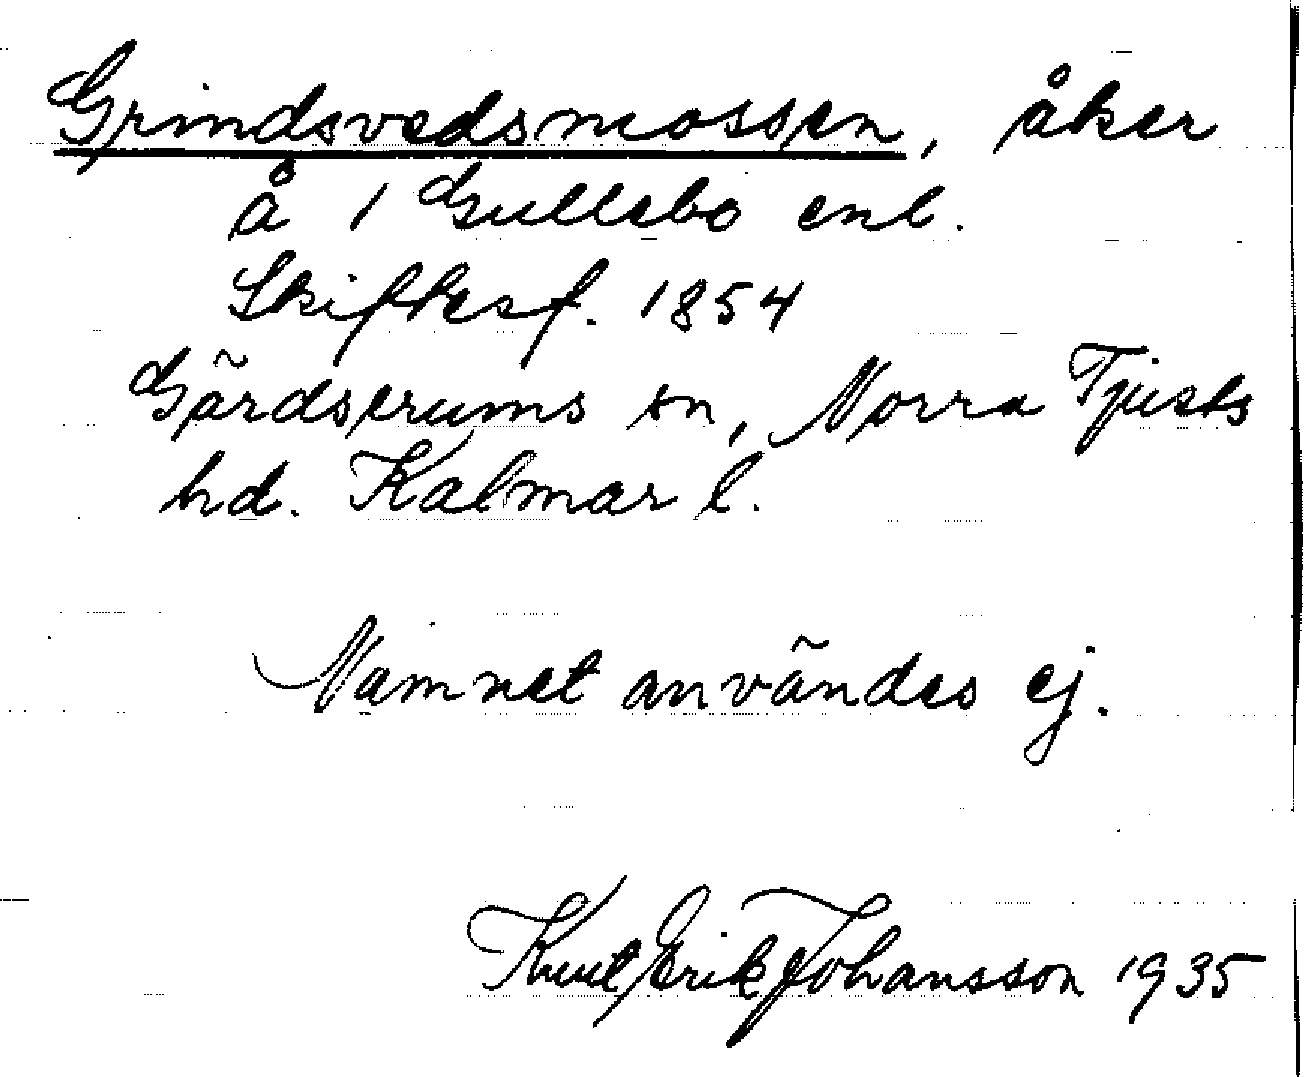 Grindsvedsmossen, åker
å 1 Gullebo enl.
Skiftesf. 1854
Gärdserums sn, Norra Tjusts
hd. Kalmar l.
Namnet användes ej.
Knut Erik Johansson 1935